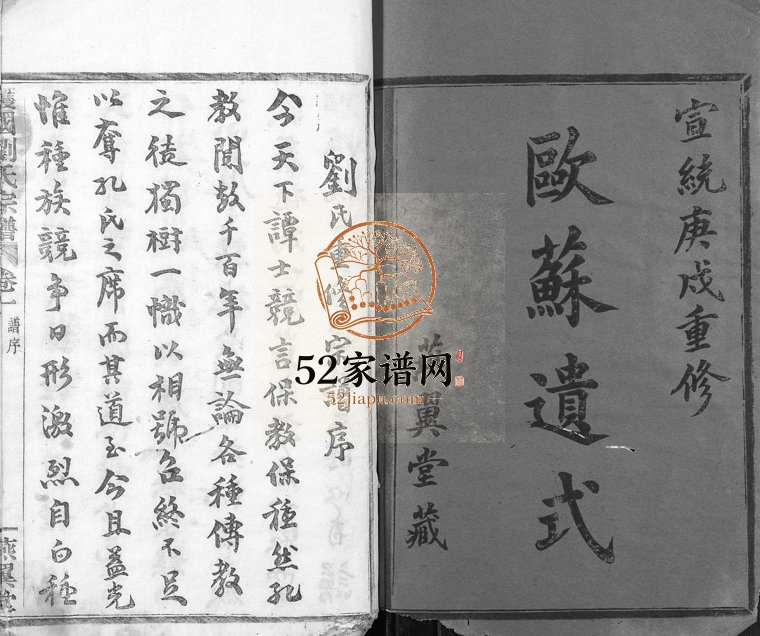 宣統庚戌重修
歐蘇遺式
燕翼堂藏
劉氏重修宗譜序
今天下譚士競言保教保種然孔
教閱數千百年無論各種傳教
之徒獨樹一幟以相號召終不足
以奪孔氏之席而其道至今且益光
惟種族競爭日形激烈自白種
護國劉氏宗譜
卷一
譜序
一
燕翼堂
52家谱网
52jiapu.com